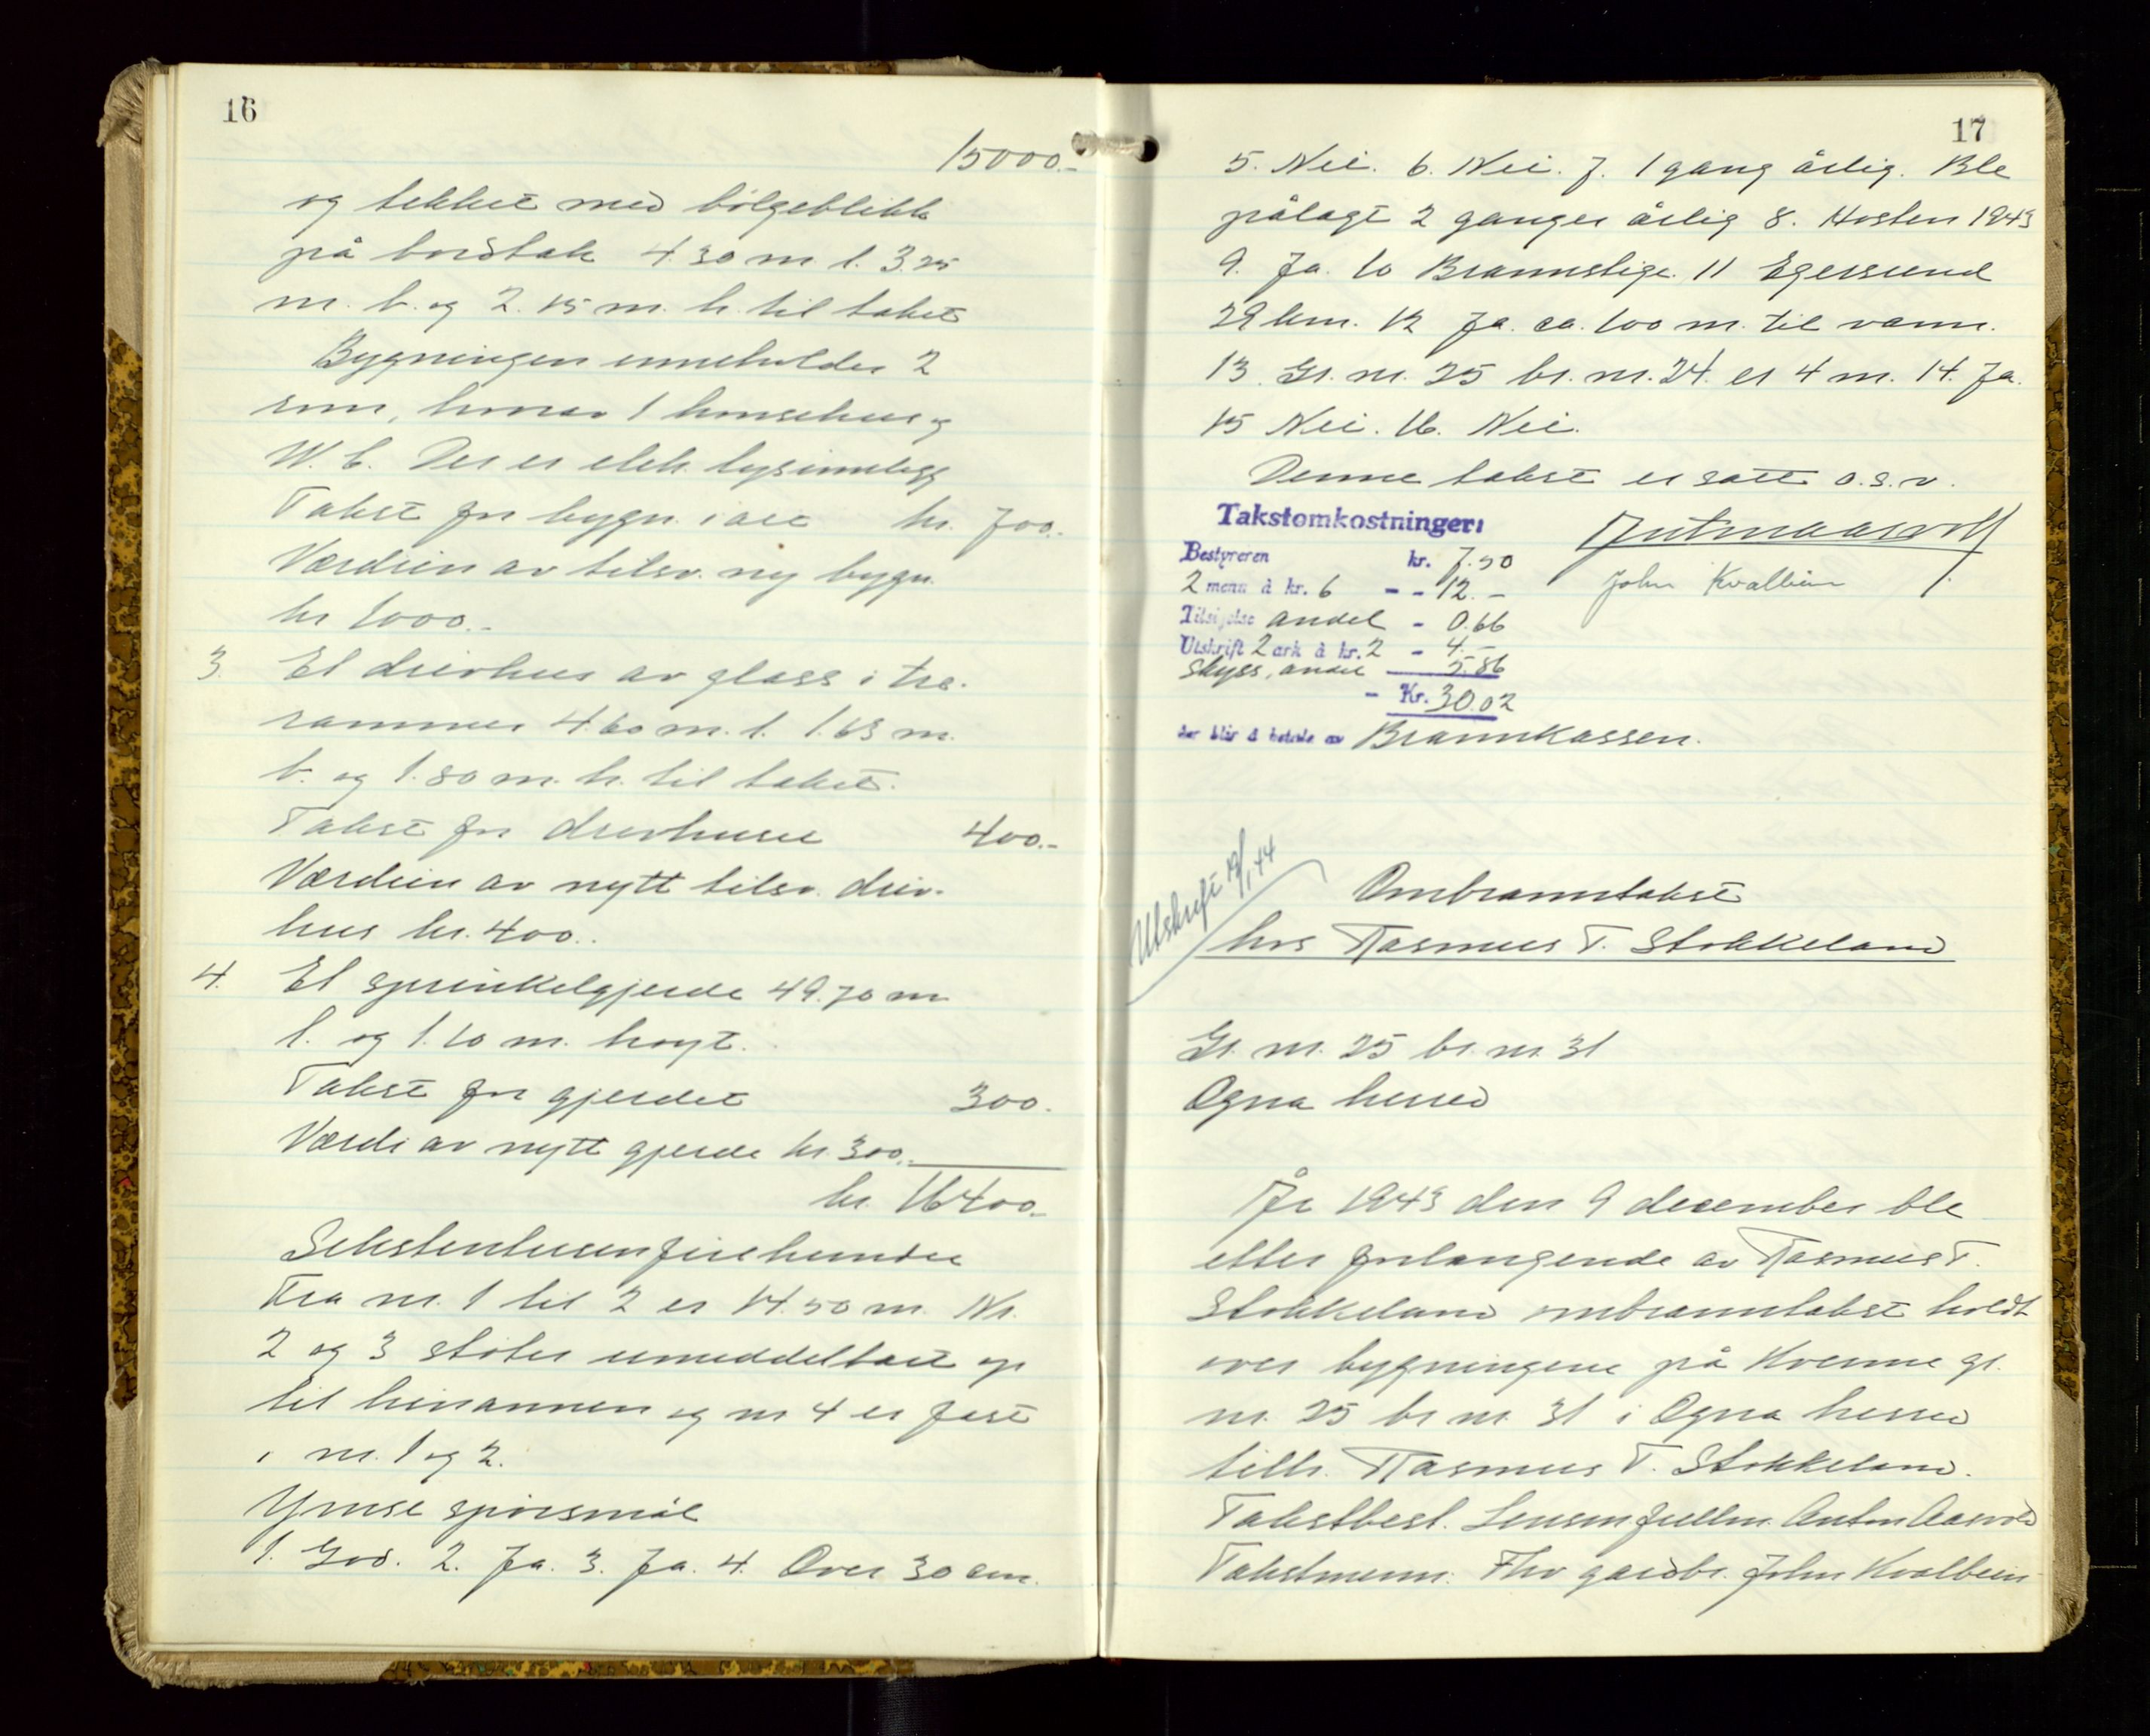 16
15000.-
og tekket med bølgeblikk
på bordtak 4.30 m l. 3.25
m. b. og 2.15 m. h. til taket
Bygningen inneholder 2
rom, hvorav 1 hønsehus og
W.C. Der er elek. lysinnlegg
Takst for bygn. i alt kr. 700.-
Værdien av tilsv. ny bygn.
kr 1000.-
3. Et drivhus av glass i tre-
rammer 4.60 m. l. 1.63 m.
b. og 1.80 m. h. til taket.
Takst for drivhuset 400.-
Værdien av nytt tilsv. driv-
hus kr. 400.-
4. Et sprinkelgjerde 49.70 m
l. og 1.10 m. høyt.
Takst for gjerdet 300.-
Værdi av nytt gjerde kr. 300.-
kr. 16400.-
Sekstentusenfirehundre
Fra nr. 1 til 2 er 14.50 m. Nr.
2 og 3 støter umiddelbart op
til hinannen og nr 4 er fast
i nr. 1 og 2.
Ymse spørsmål
1. God. 2. Ja. 3. Ja. 4. Over 30 cm.
17
5. Nei. 6. Nei. 7. 1 gang årlig. Ble
pålagt 2 ganger årlig 8. Høsten 1943
9. Ja. 10 Brannstige. 11 Egersund
29 km. 12 Ja. ca. 100 m. til vann.
13. Gr. nr. 25 br. nr. 24. er 4 m. 14. Ja.
15 Nei. 16. Nei.
Denne takst er satt o.s.v.
Takstomkostninger:
Bestyreren kr. 7.50
John Kvalbein
2 menn à kr. 6 - - 12.-
Tilsigelse andel - 0.66
Utskrift 2 ark à kr. 2 - 4.-
Skyss, andel 5.86
- Kr. 30.02
der blir å betale av Brannkassen.
Utskrift 19/1 44
Ombranntakst
hos Rasmus T. Stokkeland
Gr. nr. 25 br. nr. 31
Ogna herred
År 1943 den 9 december ble
etter forlangende av Rasmus T.
Stokkeland ombranntakst holdt
over bygningene på Kvenne gr.
nr. 25 br nr. 31 i Ogna herred
tilh. Rasmus T. Stokkeland.
Takstbest. Lensm fullm. Anton Aasvold
Takstmenn: Fhv gardbr. John Kvalbein